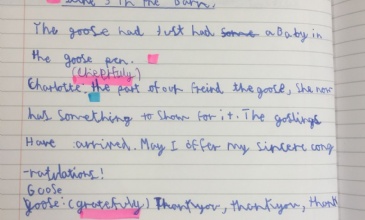 in the barn.
The goose had Just had some a Baby in
the goose pen.
(cheerfully)
Charlotte: the part of our freind the goose, she now
has something to show for it. The goslings
Have arrived. May I offer my sincere cong
-ratulations!
Goose
goose: (gratefully) Thankyou, thankyou, thank